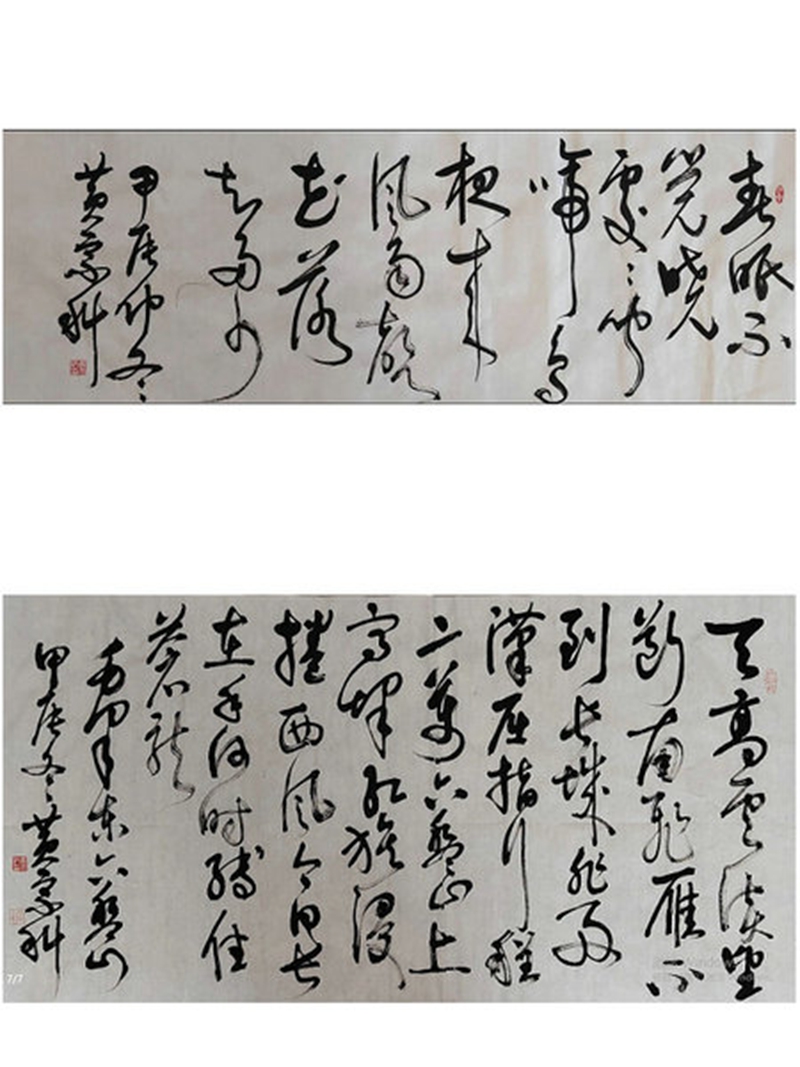 春眠不
觉晓
處々闻
啼鸟
夜来
风雨声
花落
知多少
甲辰仲冬
黄科
天高雲淡望
断南飛雁不
到长城非好
漢屈指行程
二萬六盘山上
高峰红旗漫
捲西风今日长
在手何时缚住
苍龙
毛泽东六盘山
甲辰冬黄科
7/7